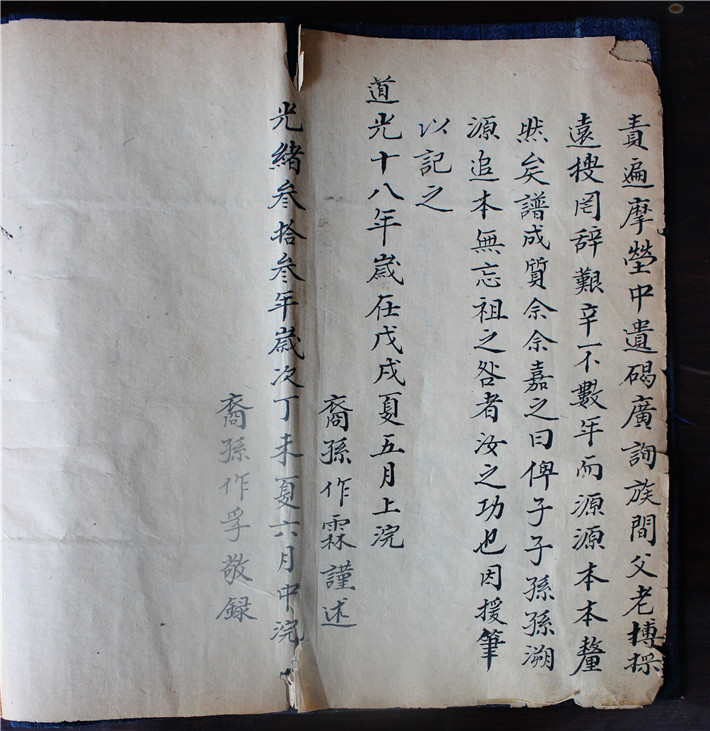 責遍摩塋中遺碣廣詢族間父老搏採
遠搜罔辭艱辛不數年而源源本本釐
然矣譜成質余余嘉之曰俾子子孫孫溯
源追本無忘祖之咎者汝之功也因援筆
以記之
道光十八年歲在戊戌夏五月上浣
裔孫作霖謹述
光緒叁拾叁年歲次丁未夏六月中浣
裔孫作孚敬録